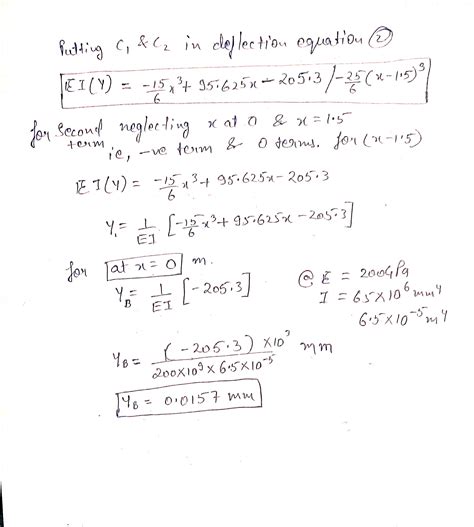 Putting C₁ & C₂ in deflection equation ②
EI(Y) = -15/6 x³ + 95.625x - 205.3 / -25/6 (x-1.5)³
for second term neglecting x at 0 & x = 1.5
ie, -ve term & 0 terms. for (x-1.5)
EI(Y) = -15/6 x³ + 95.625x - 205.3
Y = 1/EI [-15/6 x³ + 95.625x - 205.3]
for at x = 0 m.
Y_B = 1/EI [-205.3]
@ E = 200GPa
I = 65×10⁶ mm⁴
6.5×10⁻⁵ m⁴
Y_B = (-205.3) ×10³ / 200×10⁹ × 6.5×10⁻⁵ mm
Y_B = 0.0157 mm